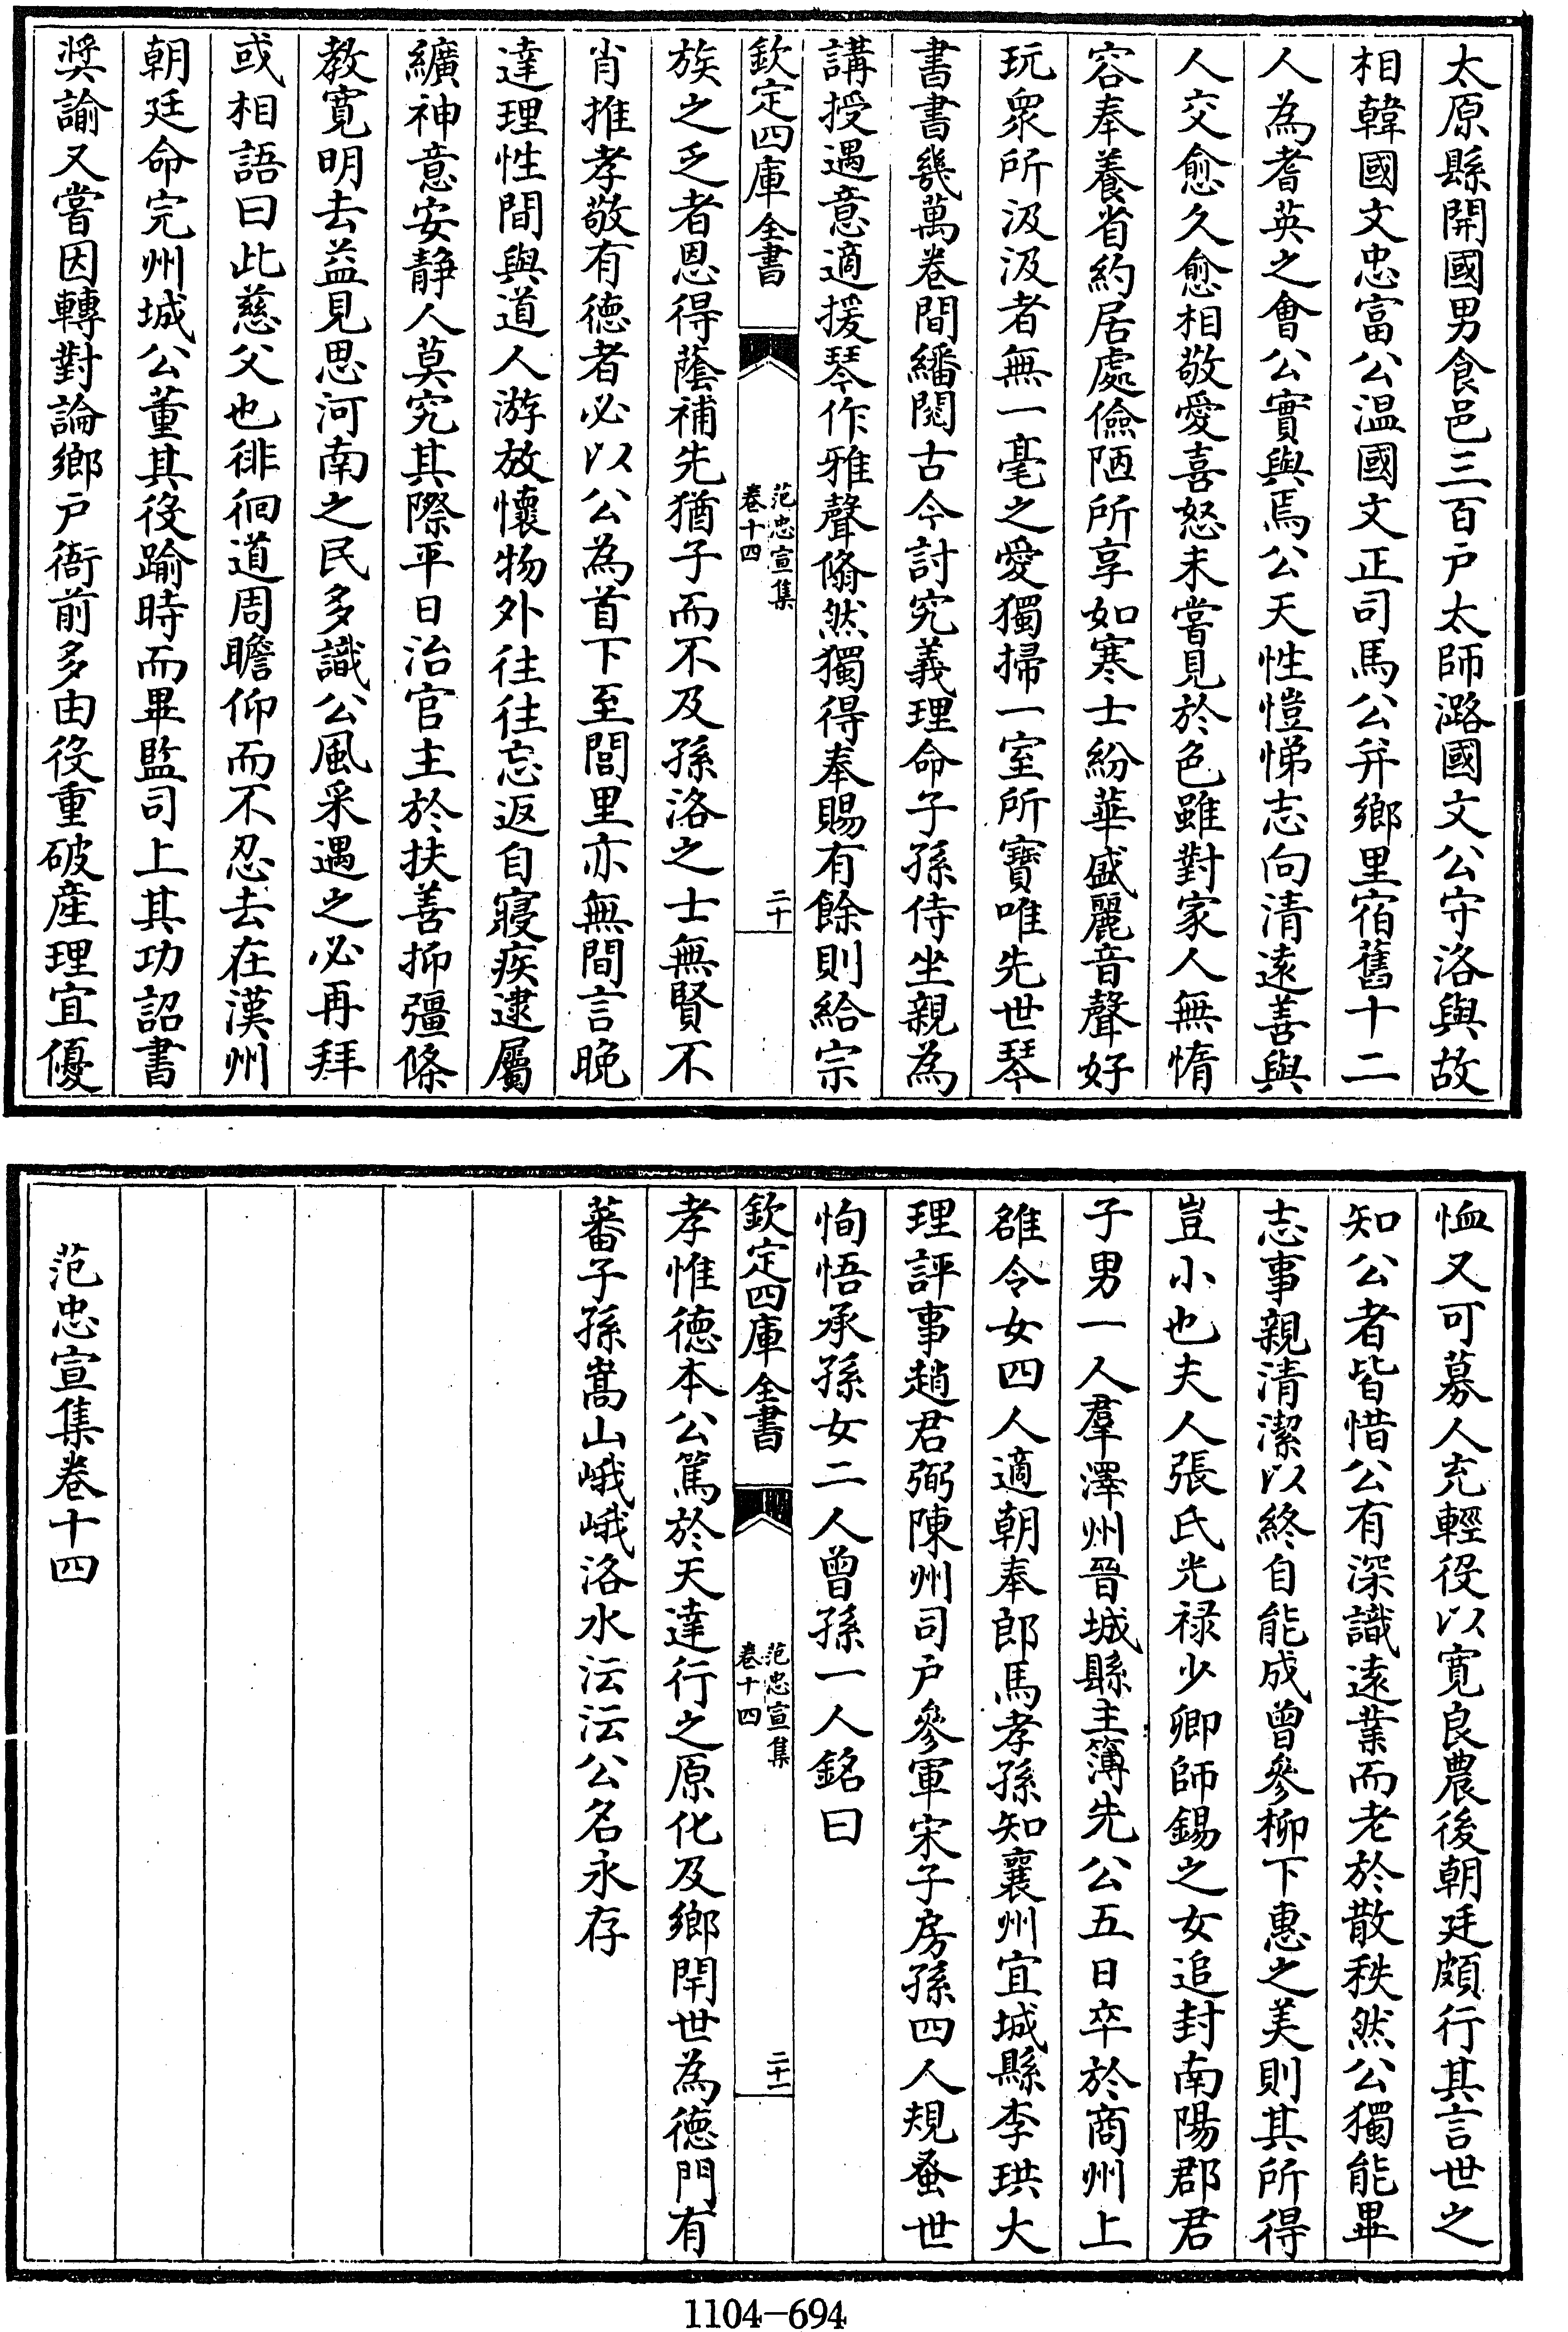 太原縣開國男食邑三百户太師潞國文公守洛與故
相韓國文忠富公温國文正司馬公并鄉里宿舊十二
人為耆英之會公實與焉公天性愷悌志向清遠善與
人交愈久愈相敬愛喜怒未嘗見於色雖對家人無惰
容奉養省約居處儉陋所享如寒士紛華盛麗音聲好
玩衆所汲汲者無一毫之愛獨掃一室所寶唯先世琴
書書幾萬卷間繙閱古今討究義理命子孫侍坐親為
講授遇意適援琴作雅聲翛然獨得奉賜有餘則給宗
欽定四庫全書
范忠宣集
卷十四
二十
族之乏者恩得蔭補先猶子而不及孫洛之士無賢不
肖推孝敬有德者必以公為首下至閭里亦無間言晚
達理性間與道人游放懷物外往往忘返自寢疾逮屬
纊神意安静人莫究其際平日治官主於扶善抑彊條
教寛明去益見思河南之民多識公風采遇之必再拜
或相語曰此慈父也徘徊道周瞻仰而不忍去在漢州
朝廷命完州城公董其役踰時而畢監司上其功詔書
奬諭又嘗因轉對論鄉户衙前多由役重破産理宜優
恤又可募人充輕役以寛良農後朝廷頗行其言世之
知公者皆惜公有深識遠業而老於散秩然公獨能畢
志事親清潔以終自能成曾參柳下惠之美則其所得
豈小也夫人張氏光禄少卿師錫之女追封南陽郡君
子男一人羣澤州晉城縣主簿先公五日卒於商州上
雒令女四人適朝奉郎馬孝孫知襄州宜城縣李珙大
理評事趙君弼陳州司户參軍宋子房孫四人規蚤世
恂悟承孫女二人曾孫一人銘曰
欽定四庫全書
范忠宣集
卷十四
二十一
孝惟德本公篤於天達行之原化及鄉閈世為德門有
蕃子孫嵩山峨峨洛水沄沄公名永存
范忠宣集卷十四
1104-694